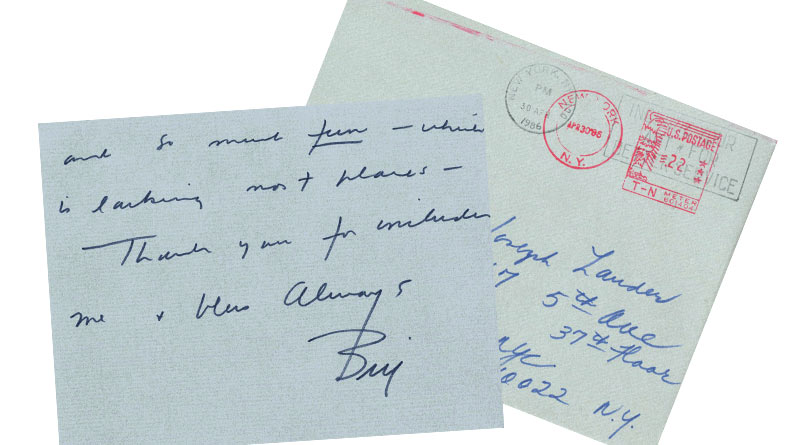 and so much fun – which
is lacking most places –
Thank you for including
me & bless Always
NEW YORK, N.Y.
PM
30 APR
1986
NEW YORK
APR 30'86
N.Y.
U.S. POSTAGE
≡.22
T-N METER
SERVICE
Joseph Lauder
5th Ave
37th Floor
NYC
10022 N.Y.